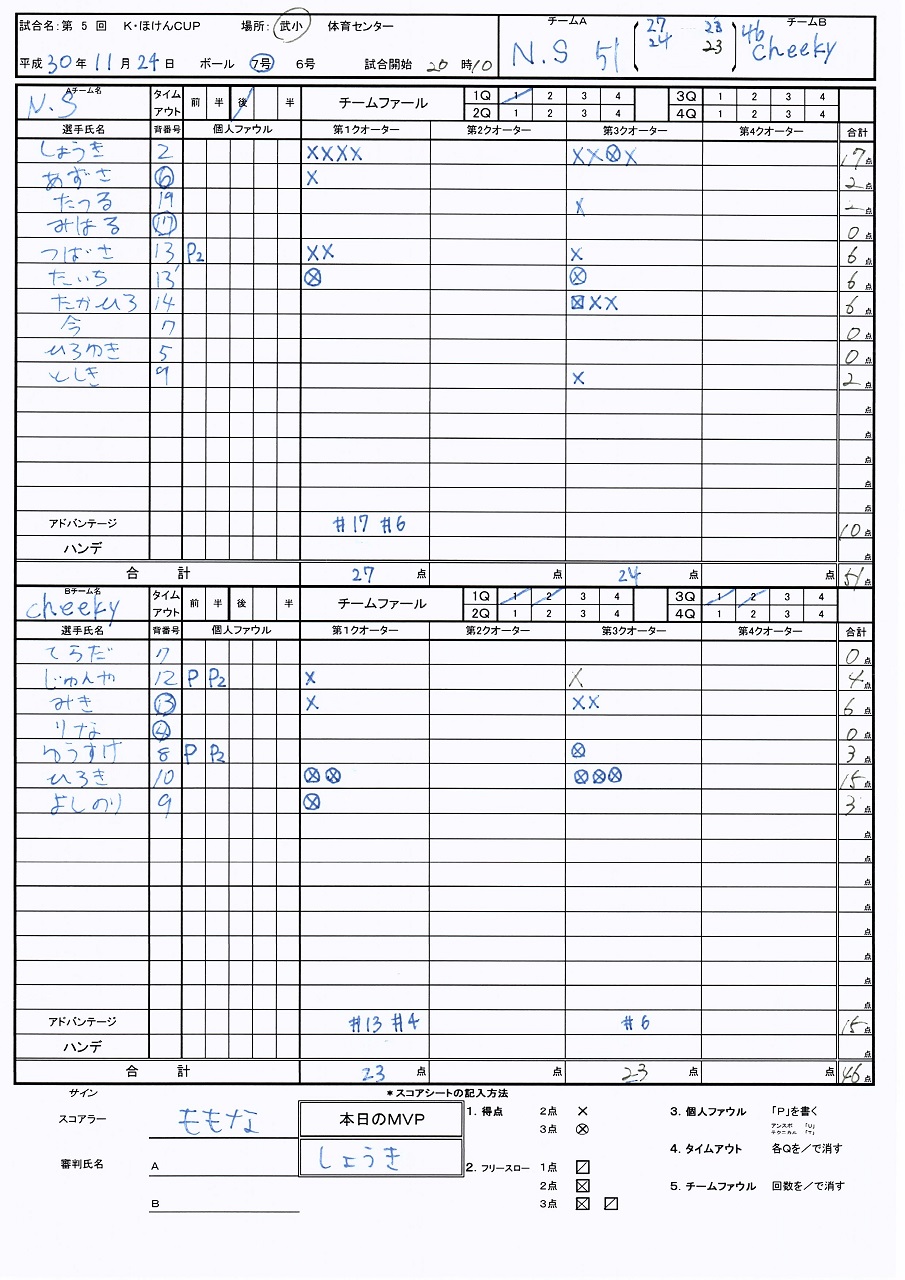 試合名:第 5 回 K・ほけんCUP 場所: 武小 体育センター
平成 30 年 11 月 24 日 ボール 7号 6号 試合開始 20 時 10
チームA チームB
N.S 51 27 23 46 cheeky
24 23
Aチーム名 N.S タイムアウト 前 半 後 半 チームファール 1Q 1 2 3 4 3Q 1 2 3 4
2Q 1 2 3 4 4Q 1 2 3 4
選手氏名 背番号 個人ファウル 第1クオーター 第2クオーター 第3クオーター 第4クオーター 合計
しょうき 2 XXXX XX⊗X 17点
あずさ 6 X 2点
たつる 19 X 2点
みはる 17 0点
つばさ 13 P2 XX X 6点
たいち 13' ⊗ ⊗ 6点
たかひろ 14 ☒XX 6点
今 7 0点
ひろゆき 5 0点
としき 9 X 2点
点
点
点
点
点
アドバンテージ #17 #6 10点
ハンデ 点
合 計 27 点 点 24 点 点 51点
Bチーム名 cheeky タイムアウト 前 半 後 半 チームファール 1Q 1 2 3 4 3Q 1 2 3 4
2Q 1 2 3 4 4Q 1 2 3 4
選手氏名 背番号 個人ファウル 第1クオーター 第2クオーター 第3クオーター 第4クオーター 合計
てらだ 7 0点
じゅんや 12 P P2 X X 4点
みき 13 X XX 6点
りな 4 0点
ゆうすけ 8 P P2 ⊗ 3点
ひろき 10 ⊗⊗ ⊗⊗⊗ 15点
よしのり 9 ⊗ 3点
点
点
点
点
点
点
点
点
アドバンテージ #13 #4 #6 15点
ハンデ 点
合 計 23 点 点 23 点 点 46点
サイン
スコアラー ももな
審判氏名 A
B
本日のMVP
しょうき
*スコアシートの記入方法
1. 得点 2点 ×
3点 ⊗
2. フリースロー 1点 ⧄
2点 ☒
3点 ☒ ⧄
3. 個人ファウル 「P」を書く
アンスポ 「U」
テクニカル 「T」
4. タイムアウト 各Qを/で消す
5. チームファウル 回数を/で消す